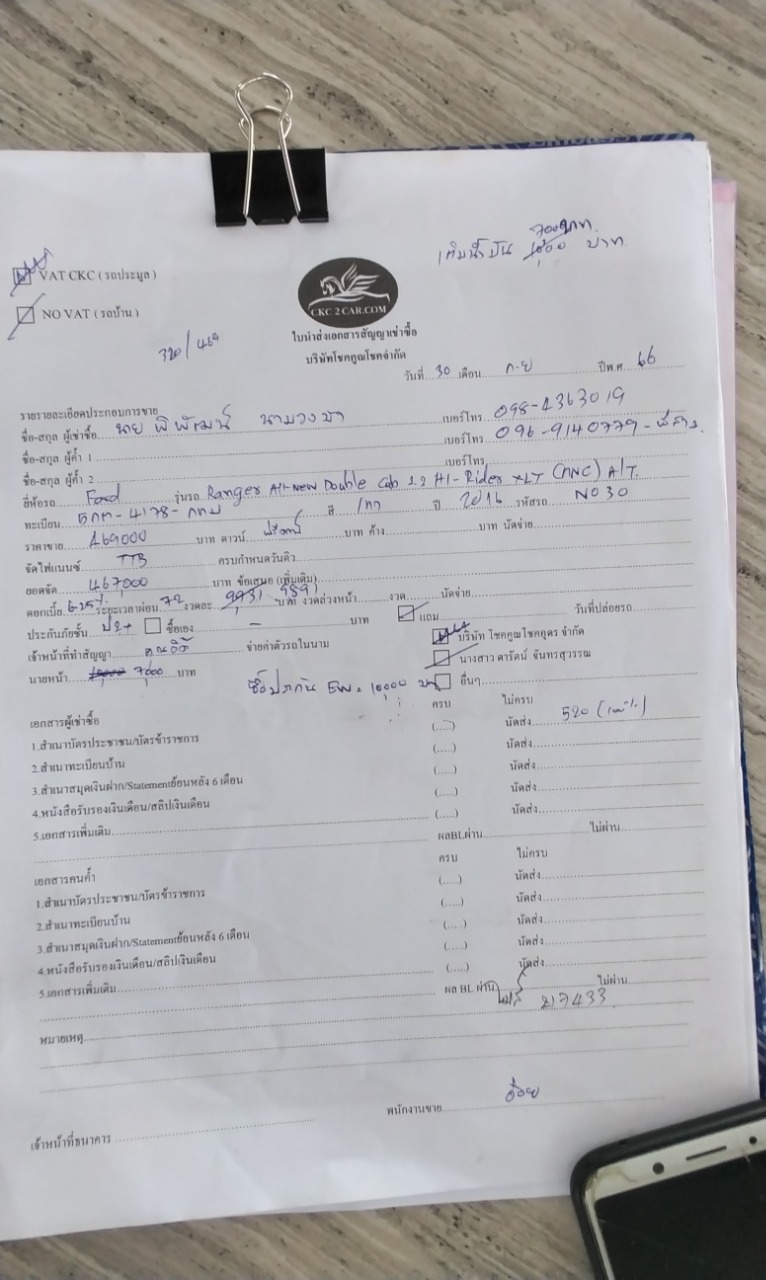 เติมน้ำมัน 700 บาท
VAT CKC ( รถประมูล )
NO VAT ( รถบ้าน )
CKC 2 CAR.COM
320/469
ใบนำส่งเอกสารสัญญาเช่าซื้อ
บริษัทโชคคูณโชคจำกัด
วันที่ 30 เดือน ก.ย ปีพ.ศ 66
รายรายละเอียดประกอบการขาย
ชื่อ-สกุล ผู้เช่าซื้อ นาย พิพัฒน์ เบอร์โทร 098-4363019
ชื่อ-สกุล ผู้ค้ำ 1 เบอร์โทร 096-9140779
ชื่อ-สกุล ผู้ค้ำ 2 เบอร์โทร
ยี่ห้อรถ Ford รุ่นรถ Ranger All-New Double Cab 2.2 HI-Rider XLT (MNC) A/T
ทะเบียน 4178 - กทม สี เทา ปี 2016 รหัสรถ NO 30
ราคาขาย 469000 บาท ดาวน์ บาท ค้าง บาท นัดจ่าย
จัดไฟแนนซ์ TTB ครบกำหนดวันดิว
ยอดจัด 467,000 บาท ข้อเสนอ (เพิ่มเติม)
ดอกเบี้ย 6.25% ระยะเวลาผ่อน 72 งวดละ บาท งวดล่วงหน้า งวด นัดจ่าย
ประกันภัยชั้น ป2+ ซื้อเอง - บาท แถม วันที่ปล่อยรถ
เจ้าหน้าที่ทำสัญญา จ่ายค่าตัวรถในนาม บริษัท โชคคูณโชคอุดร จำกัด
นางสาว ดารัตน์ จันทรสุวรรณ
นายหน้า 7000 บาท อื่นๆ
ซื้อประกัน EW = 10,000 บาท
เอกสารผู้เช่าซื้อ ครบ ไม่ครบ
1.สำเนาบัตรประชาชน/บัตรข้าราชการ (.....) นัดส่ง 520 (100%)
2.สำเนาทะเบียนบ้าน (.....) นัดส่ง
3.สำเนาสมุดเงินฝาก/Statementย้อนหลัง 6 เดือน (.....) นัดส่ง
4.หนังสือรับรองเงินเดือน/สลิปเงินเดือน (.....) นัดส่ง
5.เอกสารเพิ่มเติม (.....) นัดส่ง
ผลBLผ่าน ไม่ผ่าน
เอกสารคนค้ำ ครบ ไม่ครบ
1.สำเนาบัตรประชาชน/บัตรข้าราชการ (.....) นัดส่ง
2.สำเนาทะเบียนบ้าน (.....) นัดส่ง
3.สำเนาสมุดเงินฝาก/Statementย้อนหลัง 6 เดือน (.....) นัดส่ง
4.หนังสือรับรองเงินเดือน/สลิปเงินเดือน (.....) นัดส่ง
5.เอกสารเพิ่มเติม (.....) นัดส่ง
ผล BL ผ่าน ไมล์ 217433 ไม่ผ่าน
หมายเหตุ
พนักงานขาย อ๋อย
เจ้าหน้าที่ธนาคาร